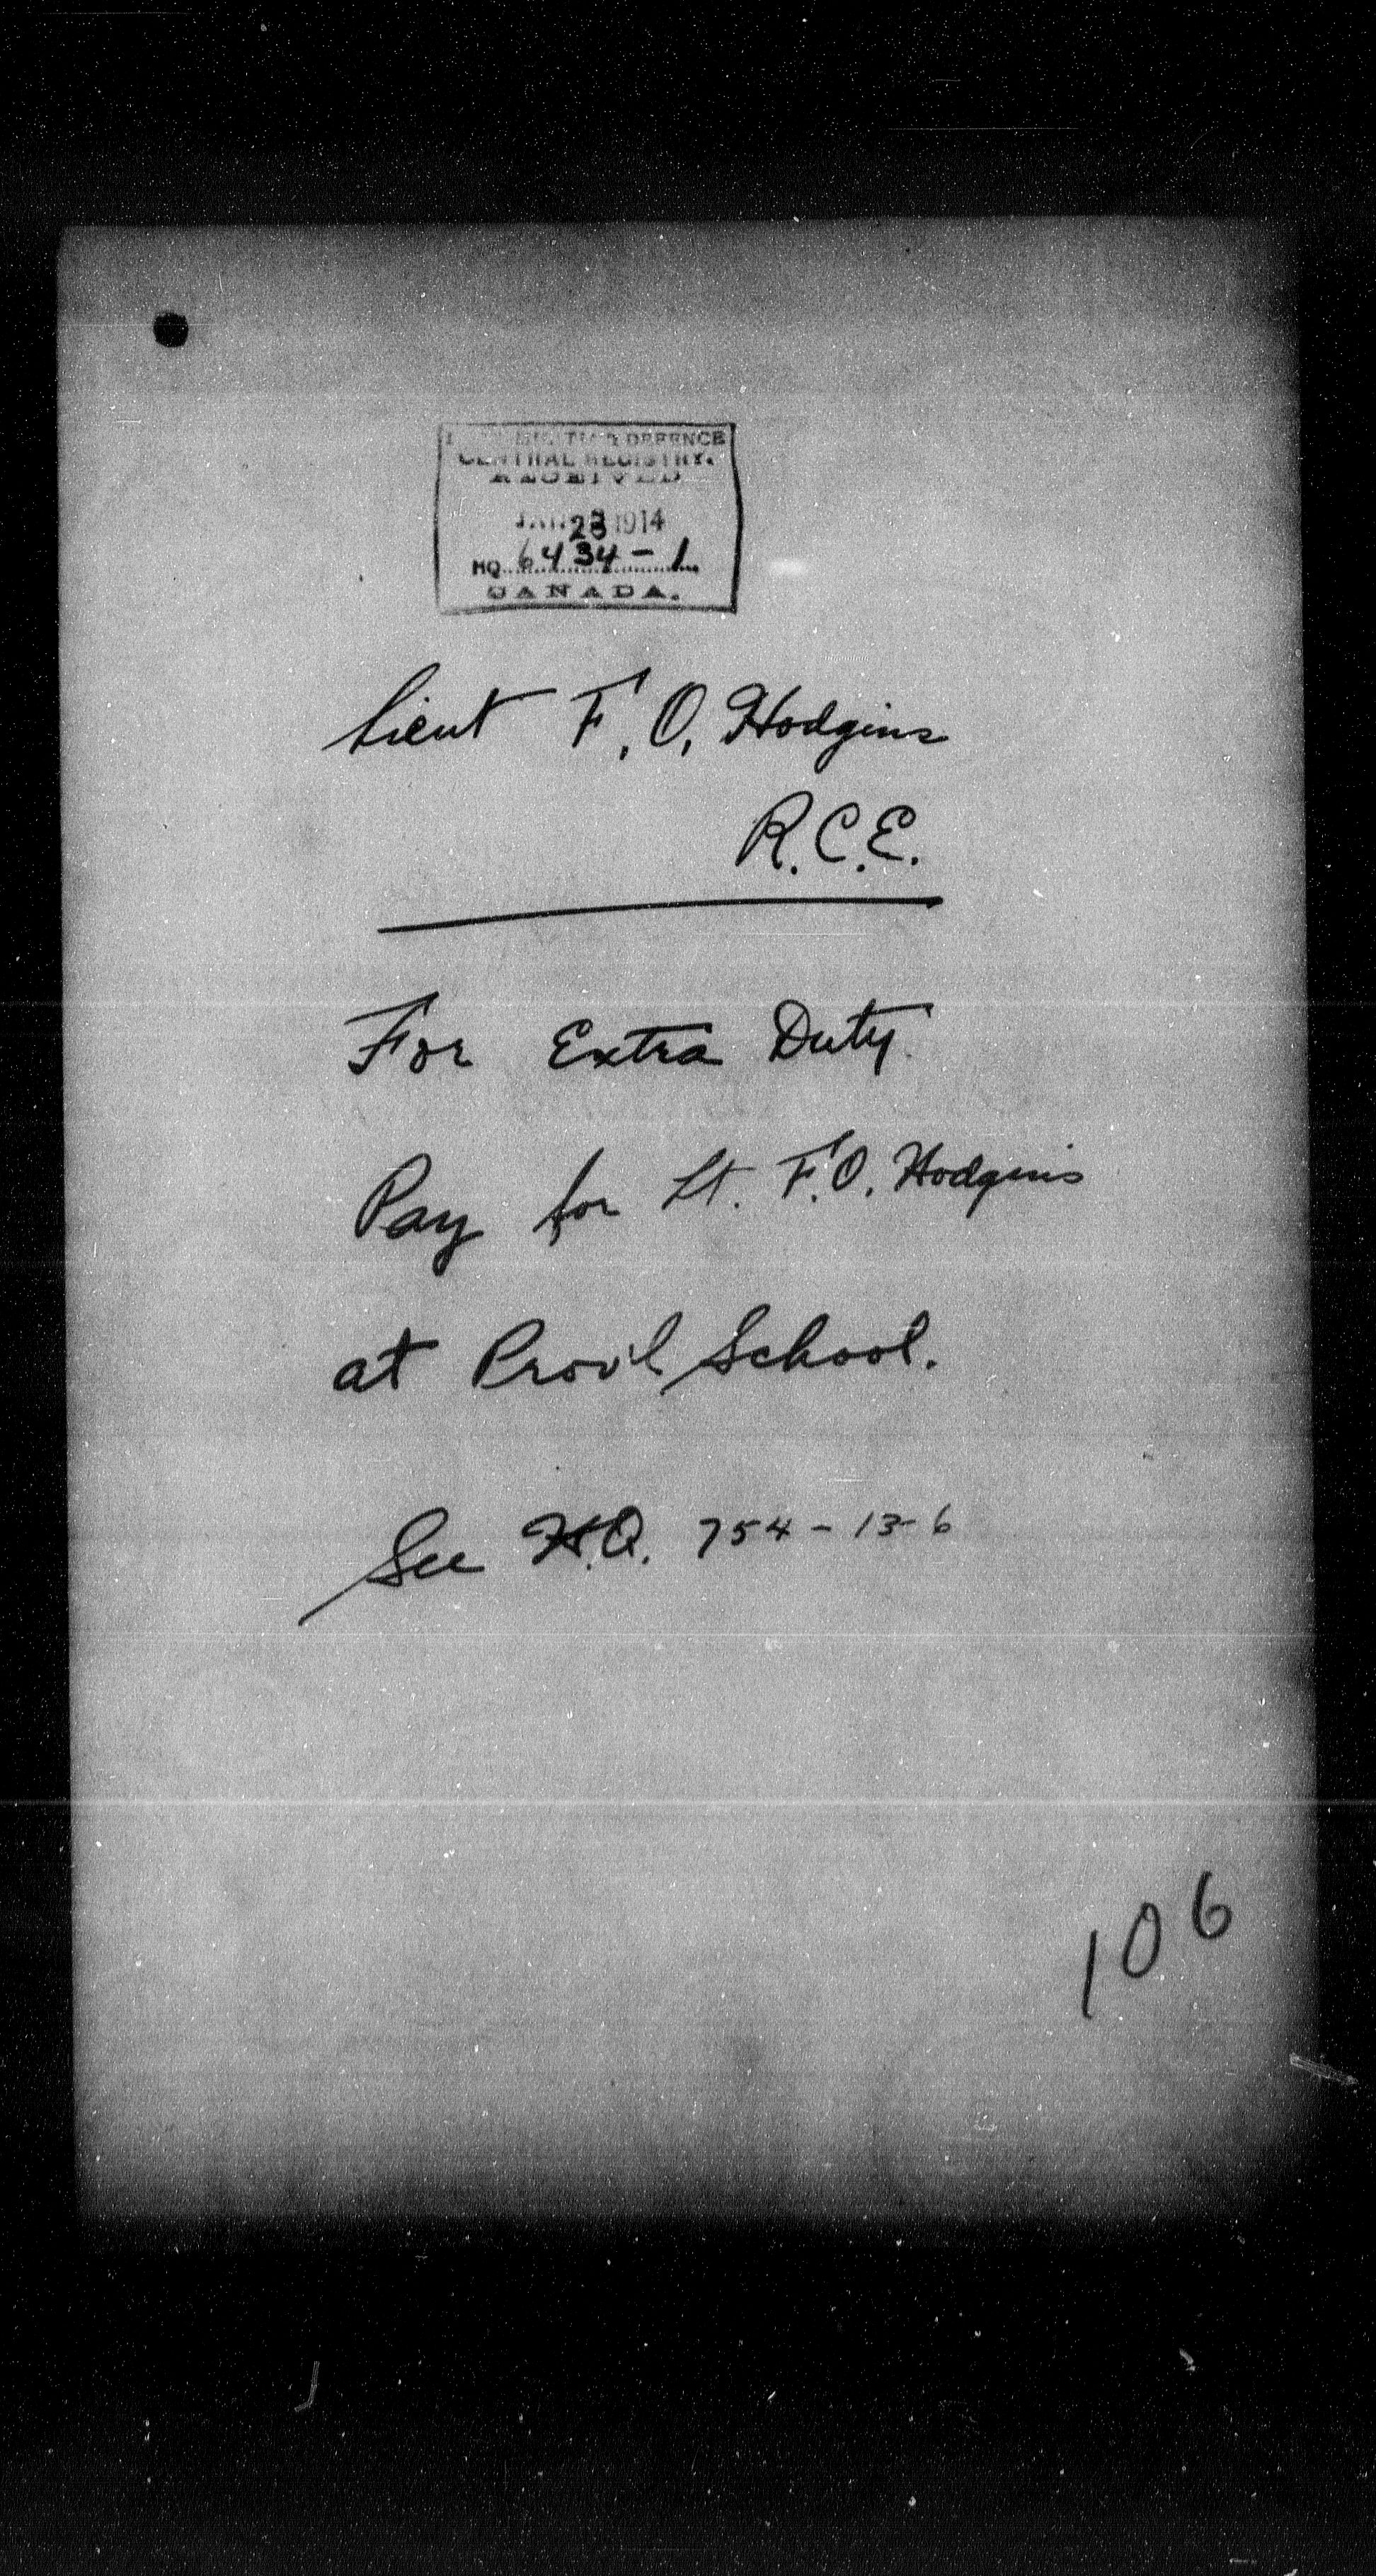 DEFENCE
CENTRAL REGISTRY.
RECEIVED
JAN 28 1914
HQ 6434-1
CANADA.
Lieut F.O. Hodgins
R.C.E.
For Extra Duty
Pay for Lt. F.O. Hodgins
at Prov'l School.
See H.Q. 754-13-6
106